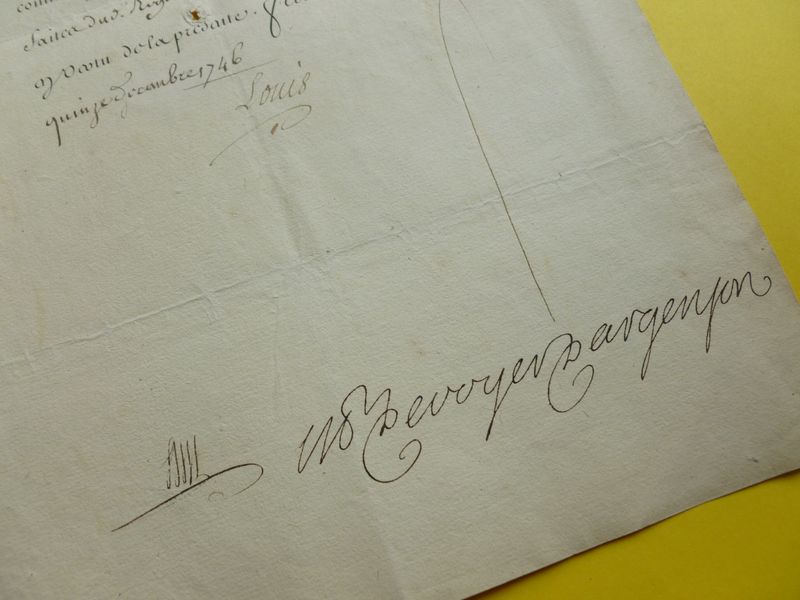 Saitca dud. Reg
en vertu de la présente.
quinze Decembre 1746
Louis
M P De voyer D'argenson